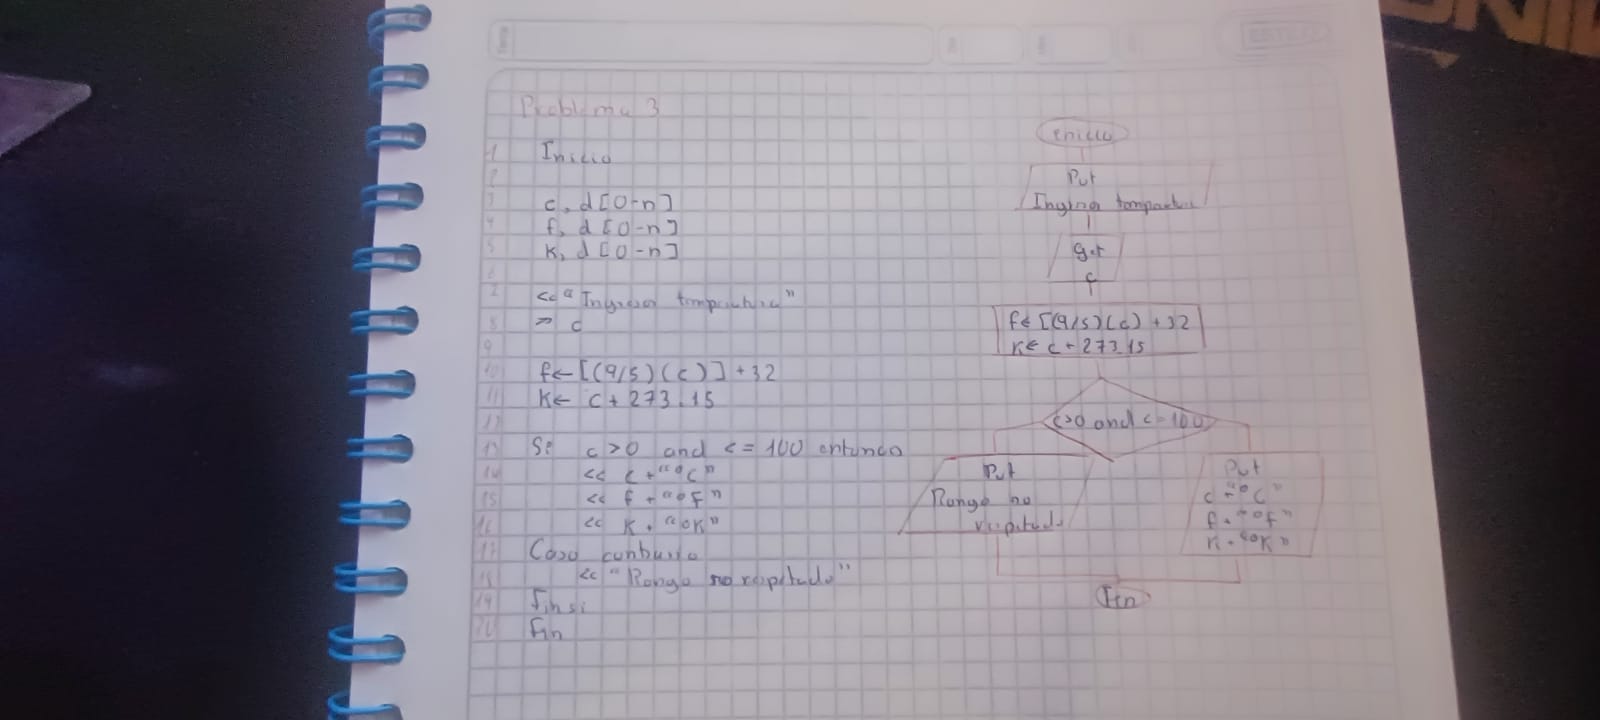 Problema 3
1 Inicio
2
3 c, d [0-n]
4 f, d [0-n]
5 K, d [0-n]
6
7 << "Ingresa
8 >> c
9
10 f← [(9/5)(c)] +32
11 K← c + 273.15
12
13 Si c > 0 and c = 100 entonces
14 << c + "°C"
15 << f + "°F"
16 << K + "°K"
17 Caso contrario
18 << "Rango no respetado"
19 Finsi
20 Fin
Inicio
Put
Ingresa
get
c
f← [(9/5)(c) + 32
K← c + 273.15
c>0 and c = 100
Put
Rango no
respetado
Put
c + "°C"
f + "°F"
K + "°K"
Fin